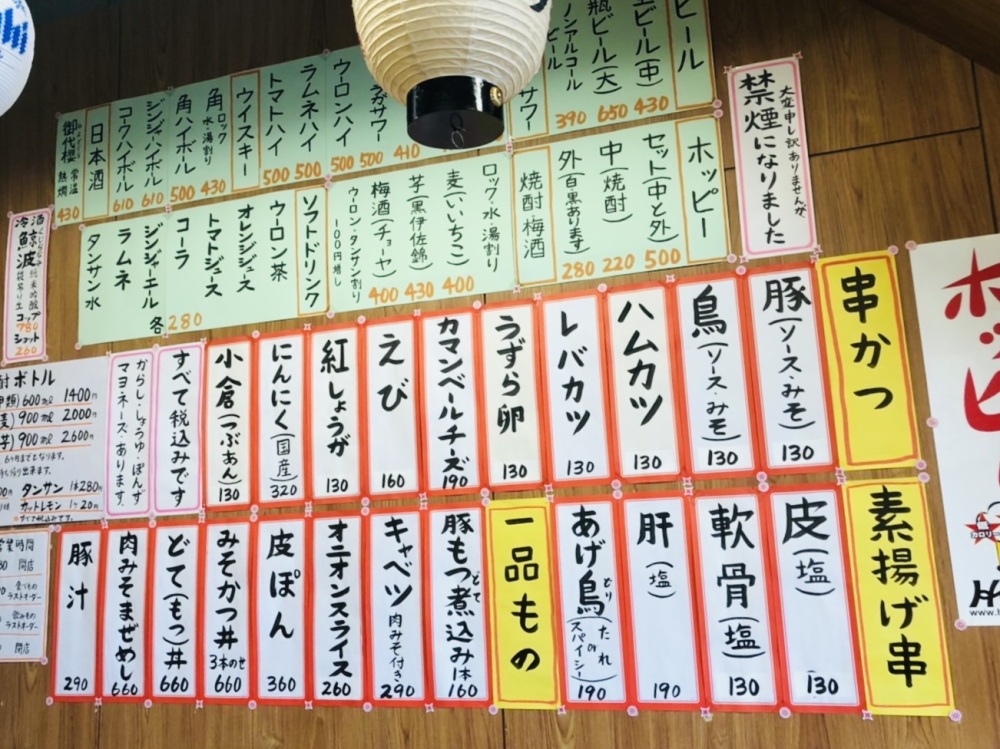 ビール
生ビール(中) 430
瓶ビール(大) 650
ノンアルコールビール 390
サワー
サワー 410
うめサワー 500
ウーロンハイ 500
ラムネハイ 500
トマトハイ 500
ウイスキー
角ロック 水・湯割り 430
角ハイボール 500
ジンジャハイボール 610
コークハイボール 610
日本酒
御代櫻 常温 熱燗 430
ホッピー
セット(中と外) 500
中(焼酎) 220
外(白黒あります) 280
焼酎 梅酒
ロック・水・湯割り
麦(いいちこ) 400
芋(黒伊佐錦) 430
梅酒(チョーヤ) 400
ウーロン・タンサン割り 100円増し
ソフトドリンク
ウーロン茶
オレンジジュース
トマトジュース
コーラ
ジンジャーエール
ラムネ
タンサン水
各280
大変申し訳ありませんが、
禁煙になりました
冷酒
鯨波
純米吟醸
コップ 780
ショット 260
串かつ
豚(ソース・みそ) 130
鳥(ソース・みそ) 130
ハムカツ 130
レバカツ 130
うずら卵 130
カマンベールチーズ 190
えび 160
紅しょうが 130
にんにく(国産) 320
小倉(つぶあん) 130
すべて税込みです
からし・しょうゆ・ぽんず
マヨネーズ・あります。
ボトル
600ml 1400円
麦) 900ml 2000円
芋) 900ml 2600円
6ヶ月までとなります。
タンサン 1本280円
カットレモン 1ヶ20円
素揚げ串
皮(塩) 130
軟骨(塩) 130
肝(塩) 190
あげ鳥(たれ のスパイシー) 190
一品もの
豚もつ煮込み 1本 160
キャベツ 肉みそ付き 290
オニオンスライス 260
皮ぽん 360
みそかつ丼 3本のせ 660
どて(もつ)丼 660
肉みそまぜめし 660
豚汁 290
営業時間
開店
ラストオーダー
ラストオーダー
閉店
ホッピー